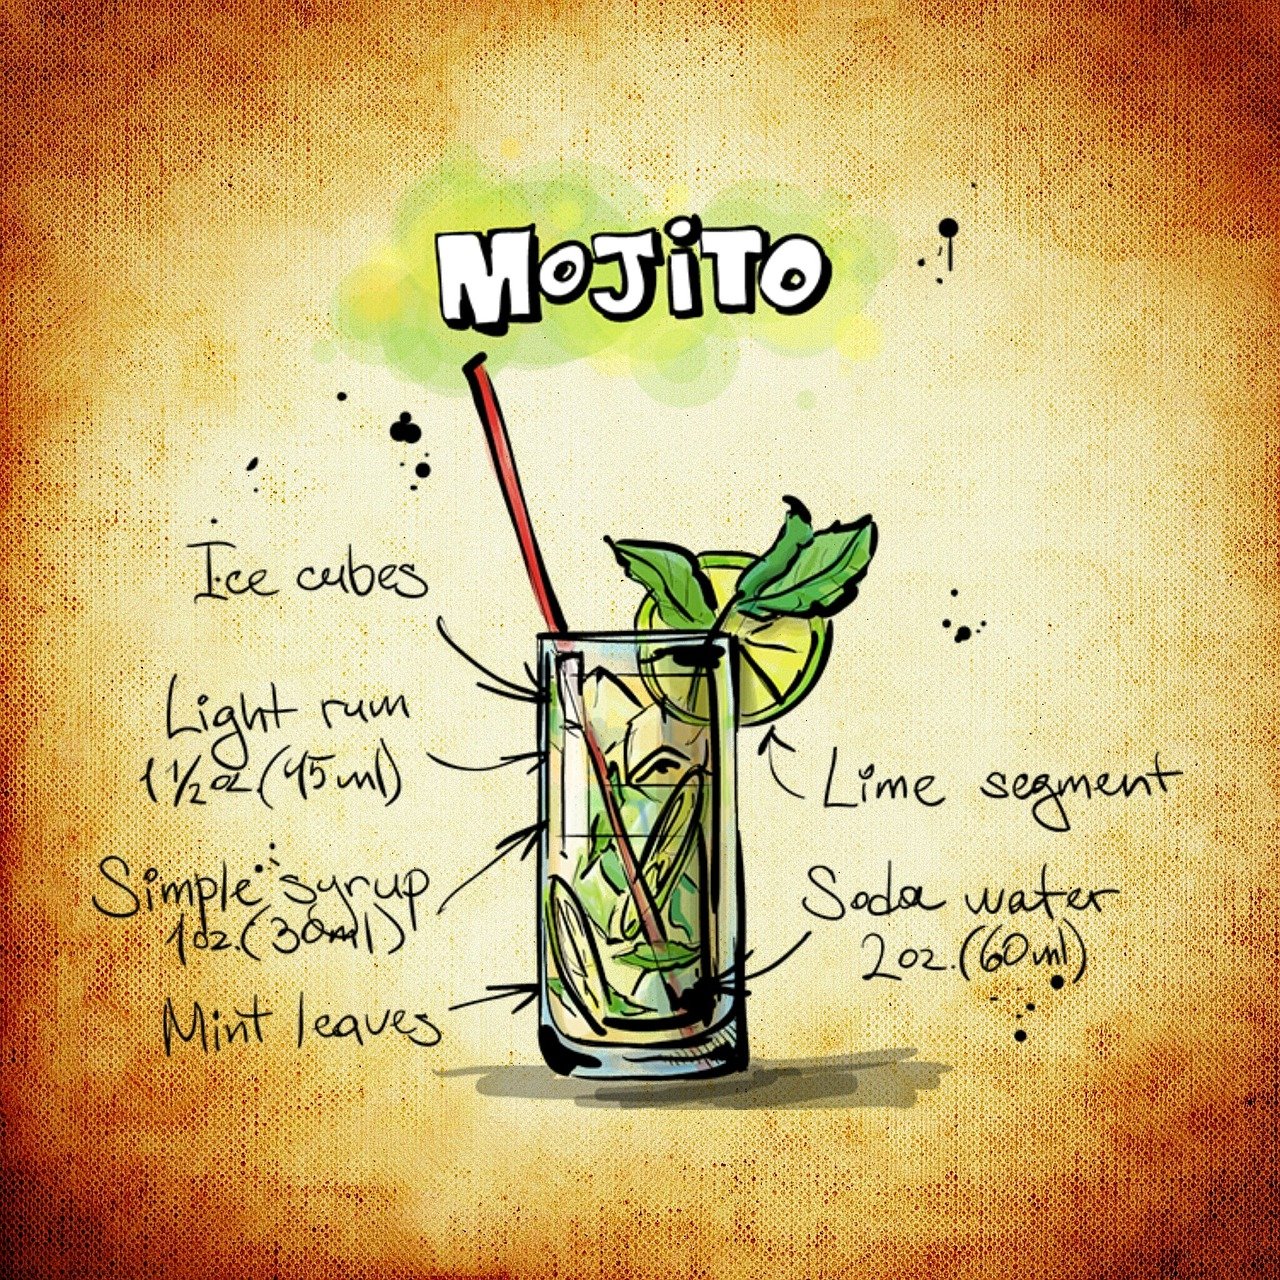 MOJiTO
Ice cubes
Light rum
1 1/2 oz (45 ml)
Simple syrup
1oz. (30ml)
Mint leaves
Lime segment
Soda water
2 oz. (60 ml)